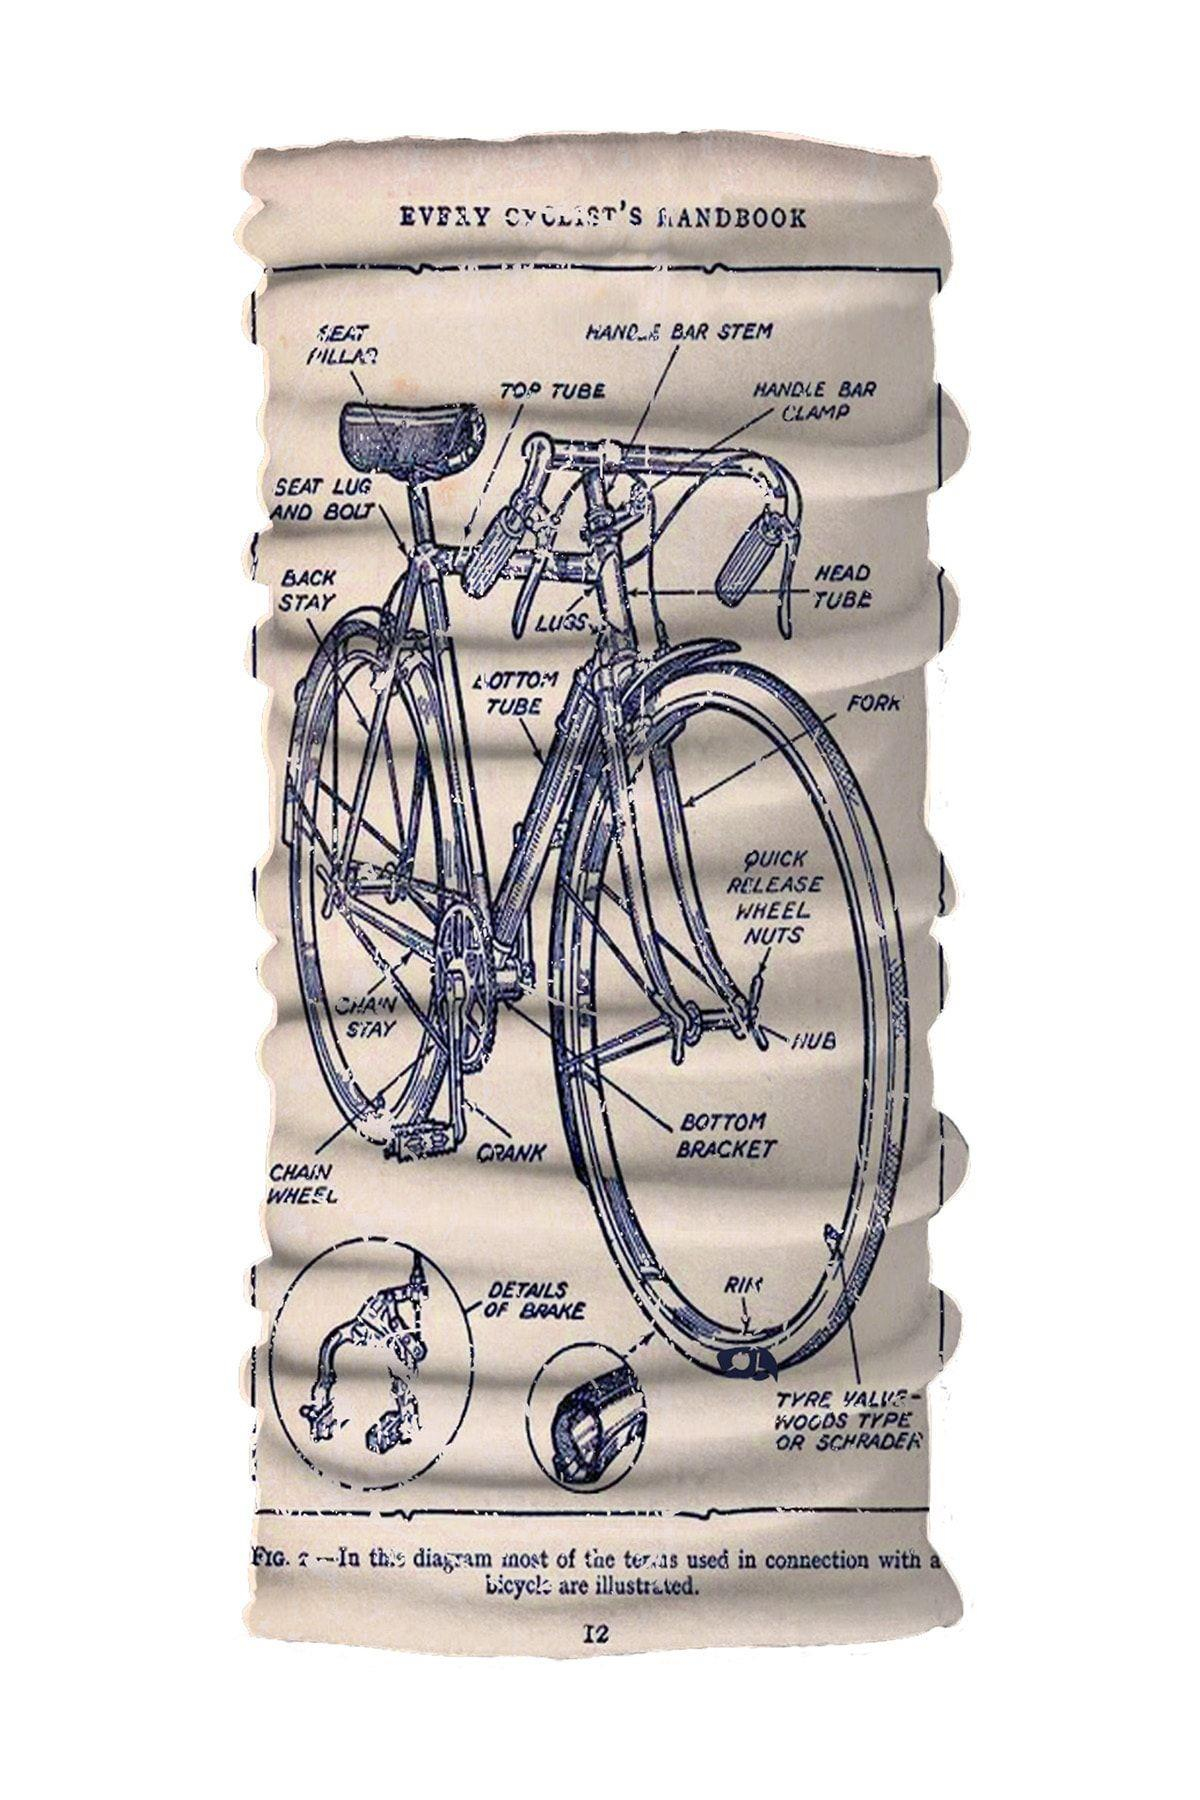 EVERY CYCLIST'S HANDBOOK
SEAT
PILLAR
HANDLE BAR STEM
TOP TUBE
HANDLE BAR
CLAMP
SEAT LUG
AND BOLT
BACK
STAY
HEAD
TUBE
LUGS
BOTTOM
TUBE
FORK
QUICK
RELEASE
WHEEL
NUTS
CHAIN
STAY
HUB
BOTTOM
BRACKET
CRANK
CHAIN
WHEEL
DETAILS
OF BRAKE
RIM
TYRE VALVE-
WOODS TYPE
OR SCHRADER
FIG. —In this diagram most of the terms used in connection with a
bicycle are illustrated.
12